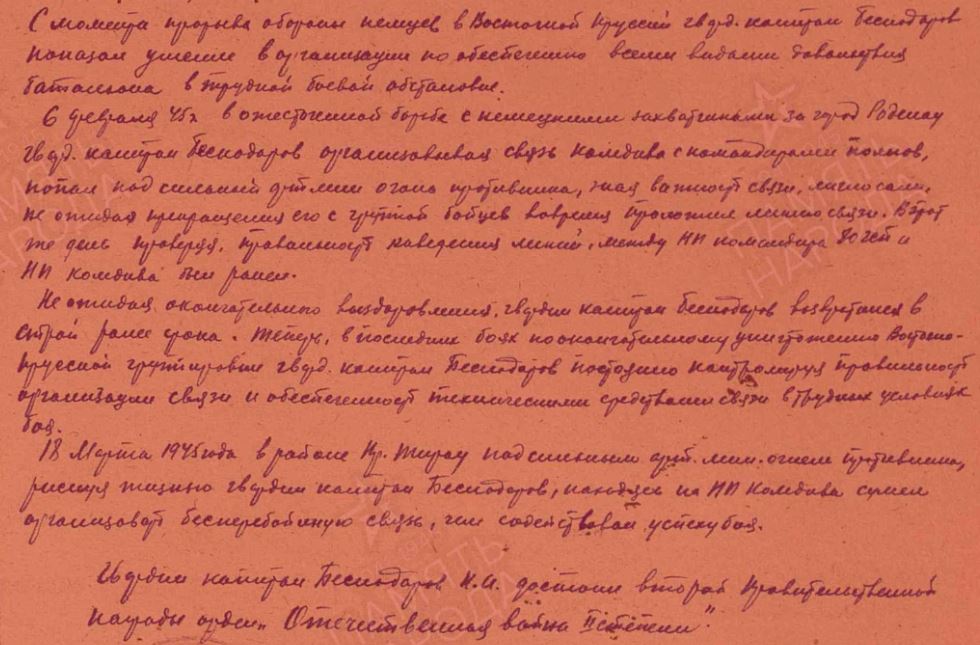 С момента прорыва обороны немцев в Восточной Пруссии гвард. капитан Бесподаров
показал умение в организации по обеспечению всеми видами довольствия
батальона в трудной боевой обстановке.
6 февраля 45г в ожесточенной борьбе с немецкими захватчиками за город
гвард. капитан Бесподаров организовывая связь комдива с командирами полков,
попал под сильный огонь противника, зная важность связи,
не ожидая прекращения его с группой бойцов вовремя проложил линию связи. В этот
же день проверяя, правильность наведения линий, между НП командира и
НП комдива был ранен.
Не ожидая окончательного выздоровления, гвардии капитан Бесподаров возвратился в
строй ранее срока. Теперь, в последних боях по окончательному уничтожению Восточно-
Прусской группировки гвард. капитан Бесподаров постоянно контролируя правильность
организации связи и обеспеченность техническими средствами связи в трудных условиях
боя.
18 Марта 1945 года в районе под сильным арт. мин. огнем противника,
рискуя жизнью гвардии капитан Бесподаров, находясь на НП Комдива сумел
организовать бесперебойную связь, чем содействовал успеху боя.
Гвардии капитан Бесподаров К.И. достоин второй Правительственной
награды орден „Отечественная война II степени".
ПАМЯТЬ
НАРОДА